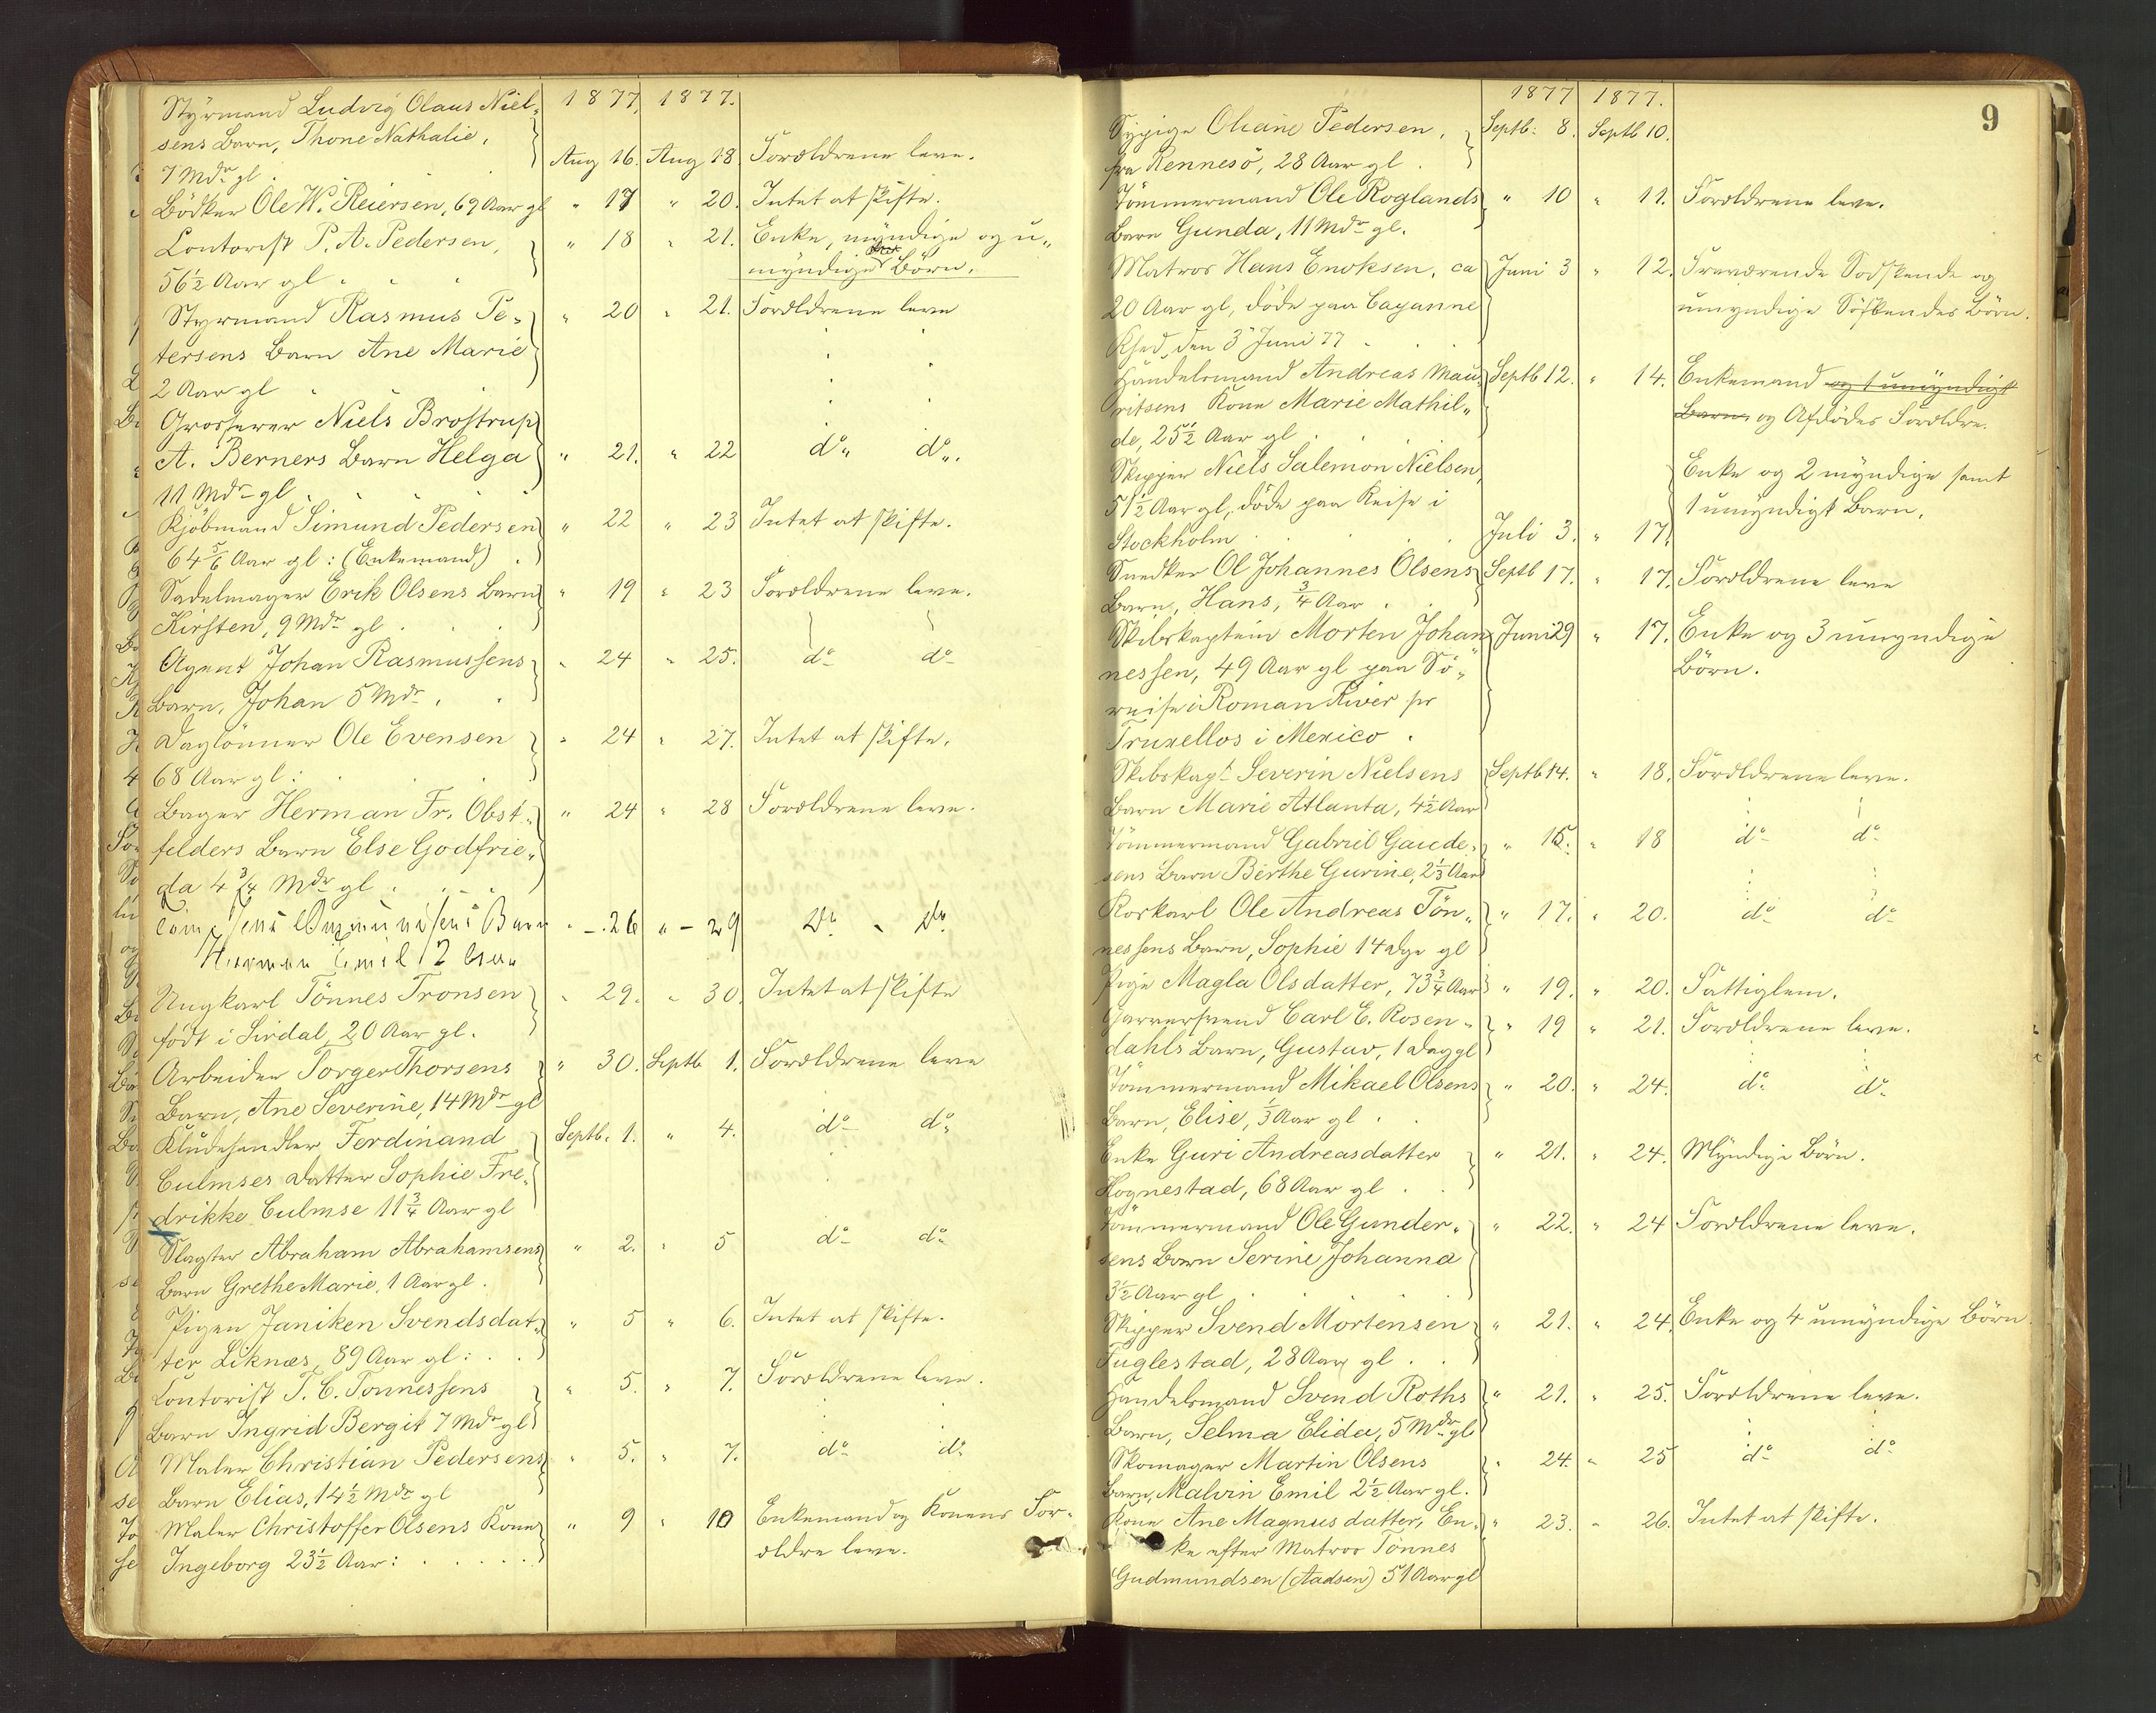 1877. 1877.
Styrmand Ludvig Olaus Niel-
sens Barn, Thone Nathalie,
7 Mdr gl. Aug 16. Aug 18 Forældrene leve.
Bödker Ole W. Reiersen, 69 Aar gl " 17 " 20. Intet at skifte.
Contorist P. A. Pedersen, " 18 " 21. Enke, myndige og u-
56½ Aar gl myndige Börn.
Styrmand Rasmus Pe- " 20 " 21. Forældrene leve
tersens Barn Ane Marie
2 Aar gl
Grosserer Niels Brostrup
A. Berners Barn Helga " 21. " 22 do do
11 Mdr gl
Kjöbmand Simund Pedersen " 22 " 23 Intet at skifte.
64 5/6 Aar gl: (Enkemand)
Sadelmager Erik Olsens Barn " 19 " 23 Forældrene leve.
Kirsten, 9 Mdr gl
Agent Johan Rasmussens " 24 " 25. do do
Barn, Johan 5 Mdr.
Daglönner Ole Evensen " 24 " 27. Intet at skifte.
68 Aar gl:
Bager Herman Fr. Obst- " 24 " 28 Forældrene leve.
felders Barn Else Godfrie-
da 4 3/4 Mdr gl
Barn " 26 " 29 Do Do
Herman Emil 12
Ungkarl Tönnes Tronsen " 29. " 30. Intet at skifte
födt i Sirdal, 20 Aar gl.
Arbeider Torger Thorsens " 30. Septb 1. Forældrene leve
Barn, Ane Severine, 14 Mdr gl
Kludehandler Ferdinand Septb. 1. " 4. do do
Culmses Datter Sophie Fre-
drikke Culmse 11 3/4 Aar gl
Slagter Abraham Abrahamsens " 2. " 5 do do
Barn Grethe Marie, 1 Aar gl.
Pigen Janiken Svendsdat- " 5 " 6. Intet at skifte.
ter Liknæs, 89 Aar gl:
Contorist T. C. Tonnessens " 5. " 7. Forældrene leve.
Barn Ingrid Bergit 7 Mdr gl
Maler Christian Pedersens " 5. " 7. do do
Barn Elias, 14½ Mdr gl
Maler Christoffer Olsens Kone " 9 " 10 Enkemand og Konens For-
Ingeborg 23½ Aar: ældre leve.
9
1877 1877.
Sypige Oliane Pedersen, Septb: 8. Septb 10.
fra Rennesö, 28 Aar gl.
Tömmermand Ole Roglands " 10 " 11. Forældrene leve.
Barn Gunda, 11 Mdr gl.
Matros Hans Enoksen, ca Juni 3 " 12. Fraværende Sødskende og
20 Aar gl, döde paa Cayanne umyndige Söskendes Börn.
den 3 Juni 77
Handelsmand Andreas Mau- Septb 12. " 14. Enkemand og 1 umyndigt
ritsens Kone Marie Mathil- Barn, og Afdödes Forældre.
de, 25½ Aar gl
Skipper Niels Salemon Nielsen, Enke og 2 myndige samt
51½ Aar gl, döde paa Reise i 1 umyndigt Barn.
Stockholm Juli 3. " 17.
Snedker Ol Johannes Olsens Septb 17. " 17. Forældrene leve
Barn, Hans, 3/4 Aar
Skibskaptein Morten Johan- Juni 29 " 17. Enke og 3 umyndige
nessen, 49 Aar gl paa Sö- Börn.
reise i Roman River pr
Truxellos i Mexico.
Skibskapt Severin Nielsens Septb 14. " 18. Forældrene leve.
Barn Marie Atlanta, 4½ Aar
Tömmermand Gabriel Gaude- " 15. " 18 do do
sens Barn Berthe Gurine, 2 1/3 Aar
Rorkarl Ole Andreas Tön- " 17. " 20. do do
nessens Barn, Sophie 14 Dge gl
Pige Magla Olsdatter, 73 3/4 Aar " 19. " 20. Fattiglem.
Garversvend Carl E. Rosen- " 19 " 21. Forældrene leve.
dahls Barn, Gustav, 1 Dag gl
Tömmermand Mikael Olsens " 20. " 24. do do
Barn, Elise, 1/3 Aar gl
Enke Guri Andreasdatter " 21. " 24. Myndige Börn.
Hognestad, 68 Aar gl
Tömmermand Ole Gunder- " 22. " 24 Forældrene leve.
sens Barn Serine Johanna
3½ Aar gl
Skipper Svend Mortensen " 21. " 24. Enke og 4 umyndige Börn.
Fuglestad, 28 Aar gl
Handelsmand Svend Roths " 21. " 25. Forældrene leve.
Barn, Selma Elida, 5 Mdr gl
Skomager Martin Olsens " 24. " 25 do do
Barn, Malvin Emil 2½ Aar gl.
Kone Ane Magnusdatter, En- " 23. " 26. Intet at skifte.
ke efter Matros Tönnes
Gudmundsen (Aadsen) 51 Aar gl